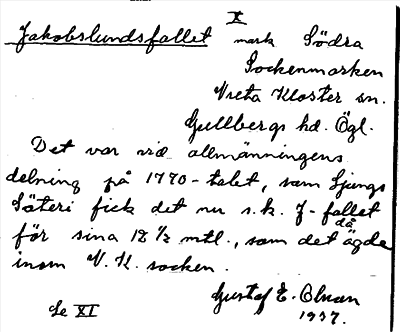 X
Jakobslundsfallet mark Södra
Sockenmarken
Vreta Kloster sn.
Gullbergs hd. Ögl.
Det var vid allmänningens
delning på 1770-talet, som Ljungs
Säteri fick det nu s.k. J-fallet
då
för sina 18 1/2 mtl., som det ägde
inom V. K. socken.
Gustaf E. Olsson
Se XI
1937.